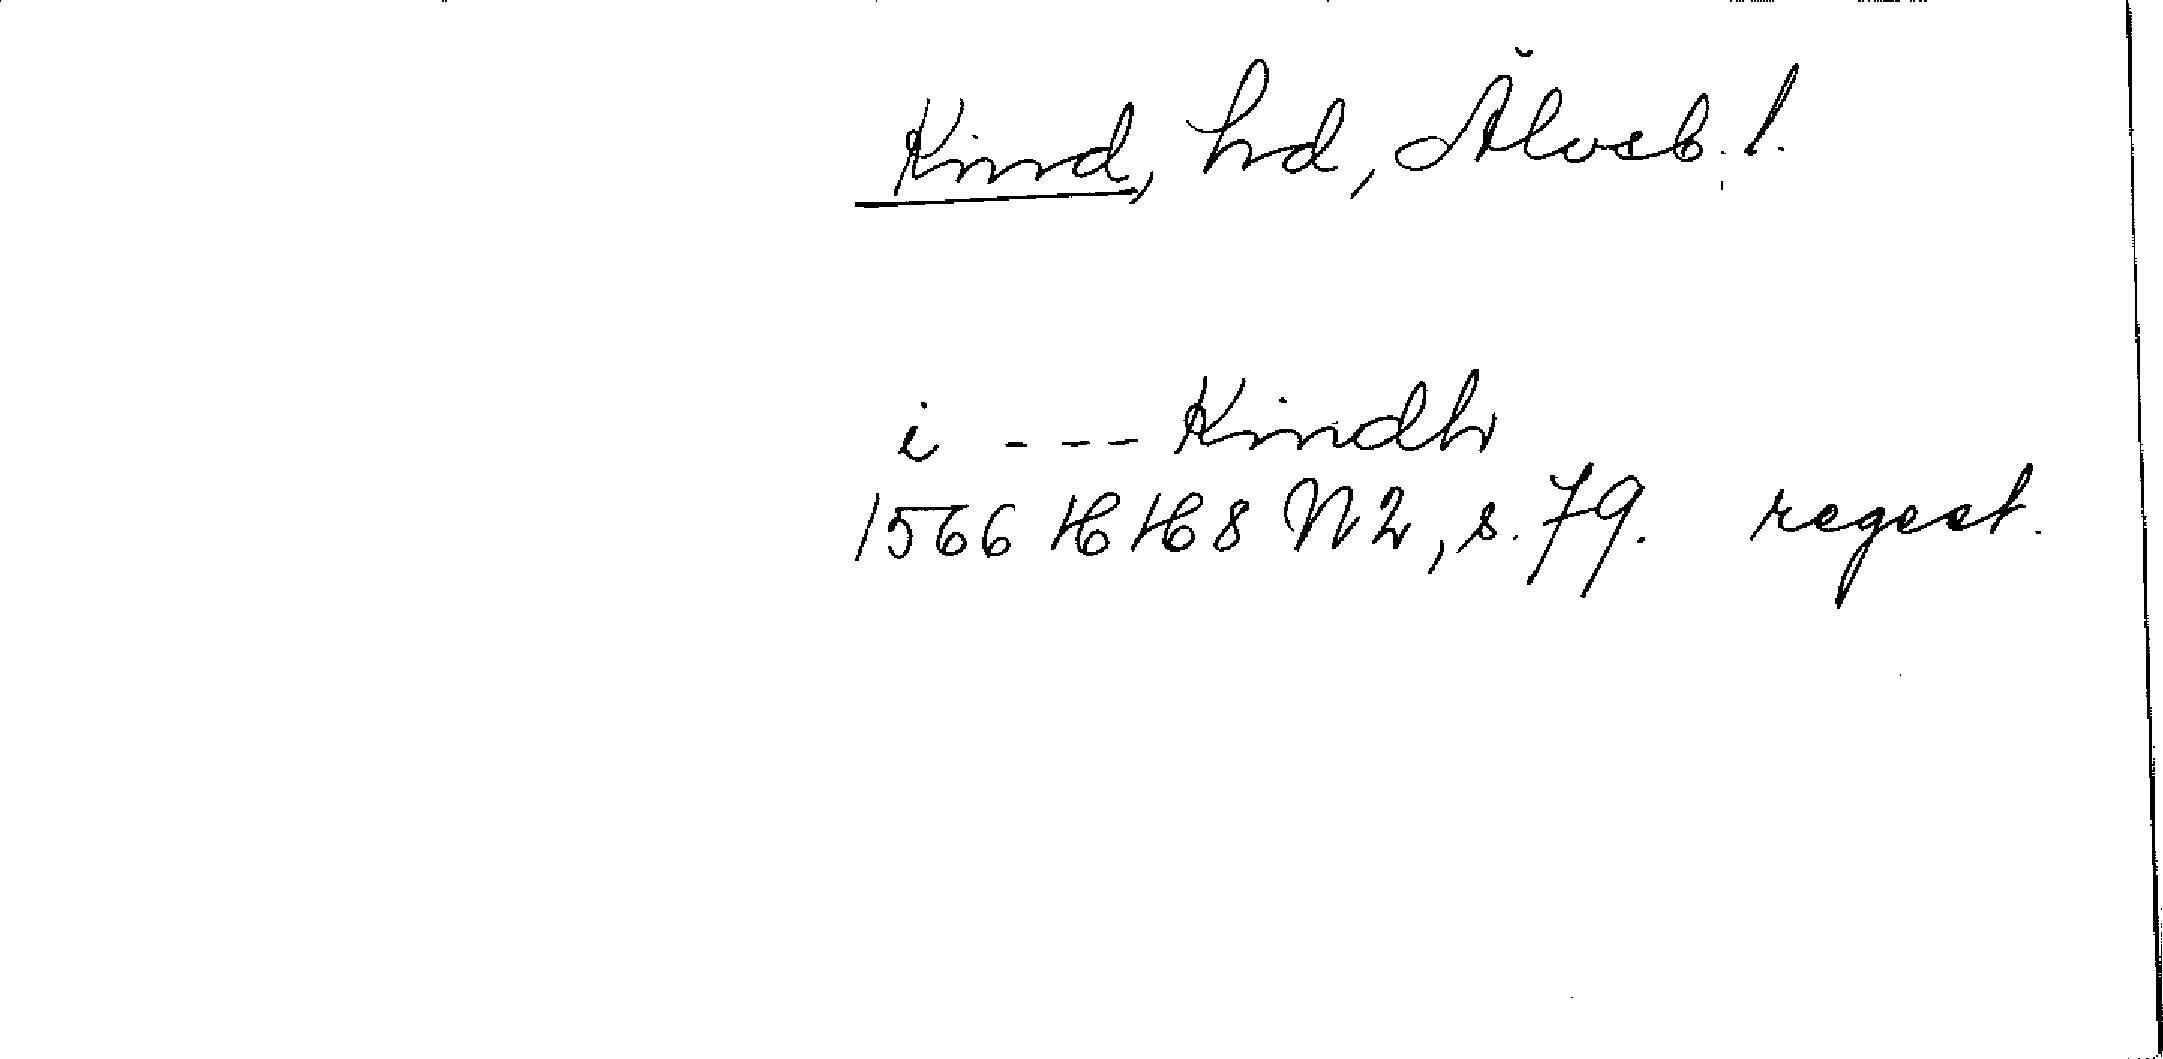 Kind, hd, Älvsb. l.
i --- Kindh
1566 HH 8 N 2, s. 79. regest.